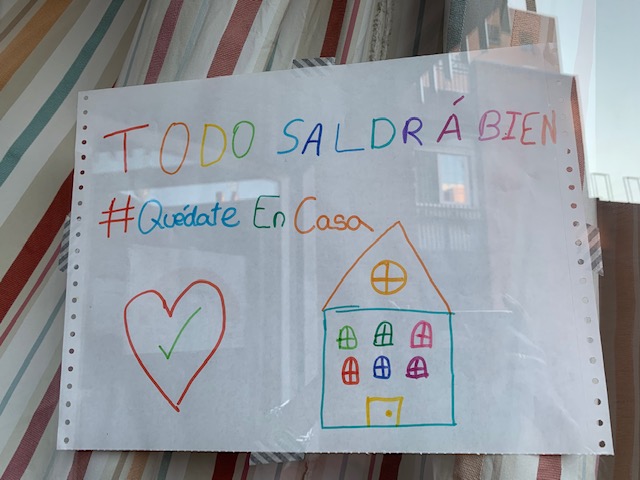 TODO SALDRÁ BIEN.
#Quédate En Casa